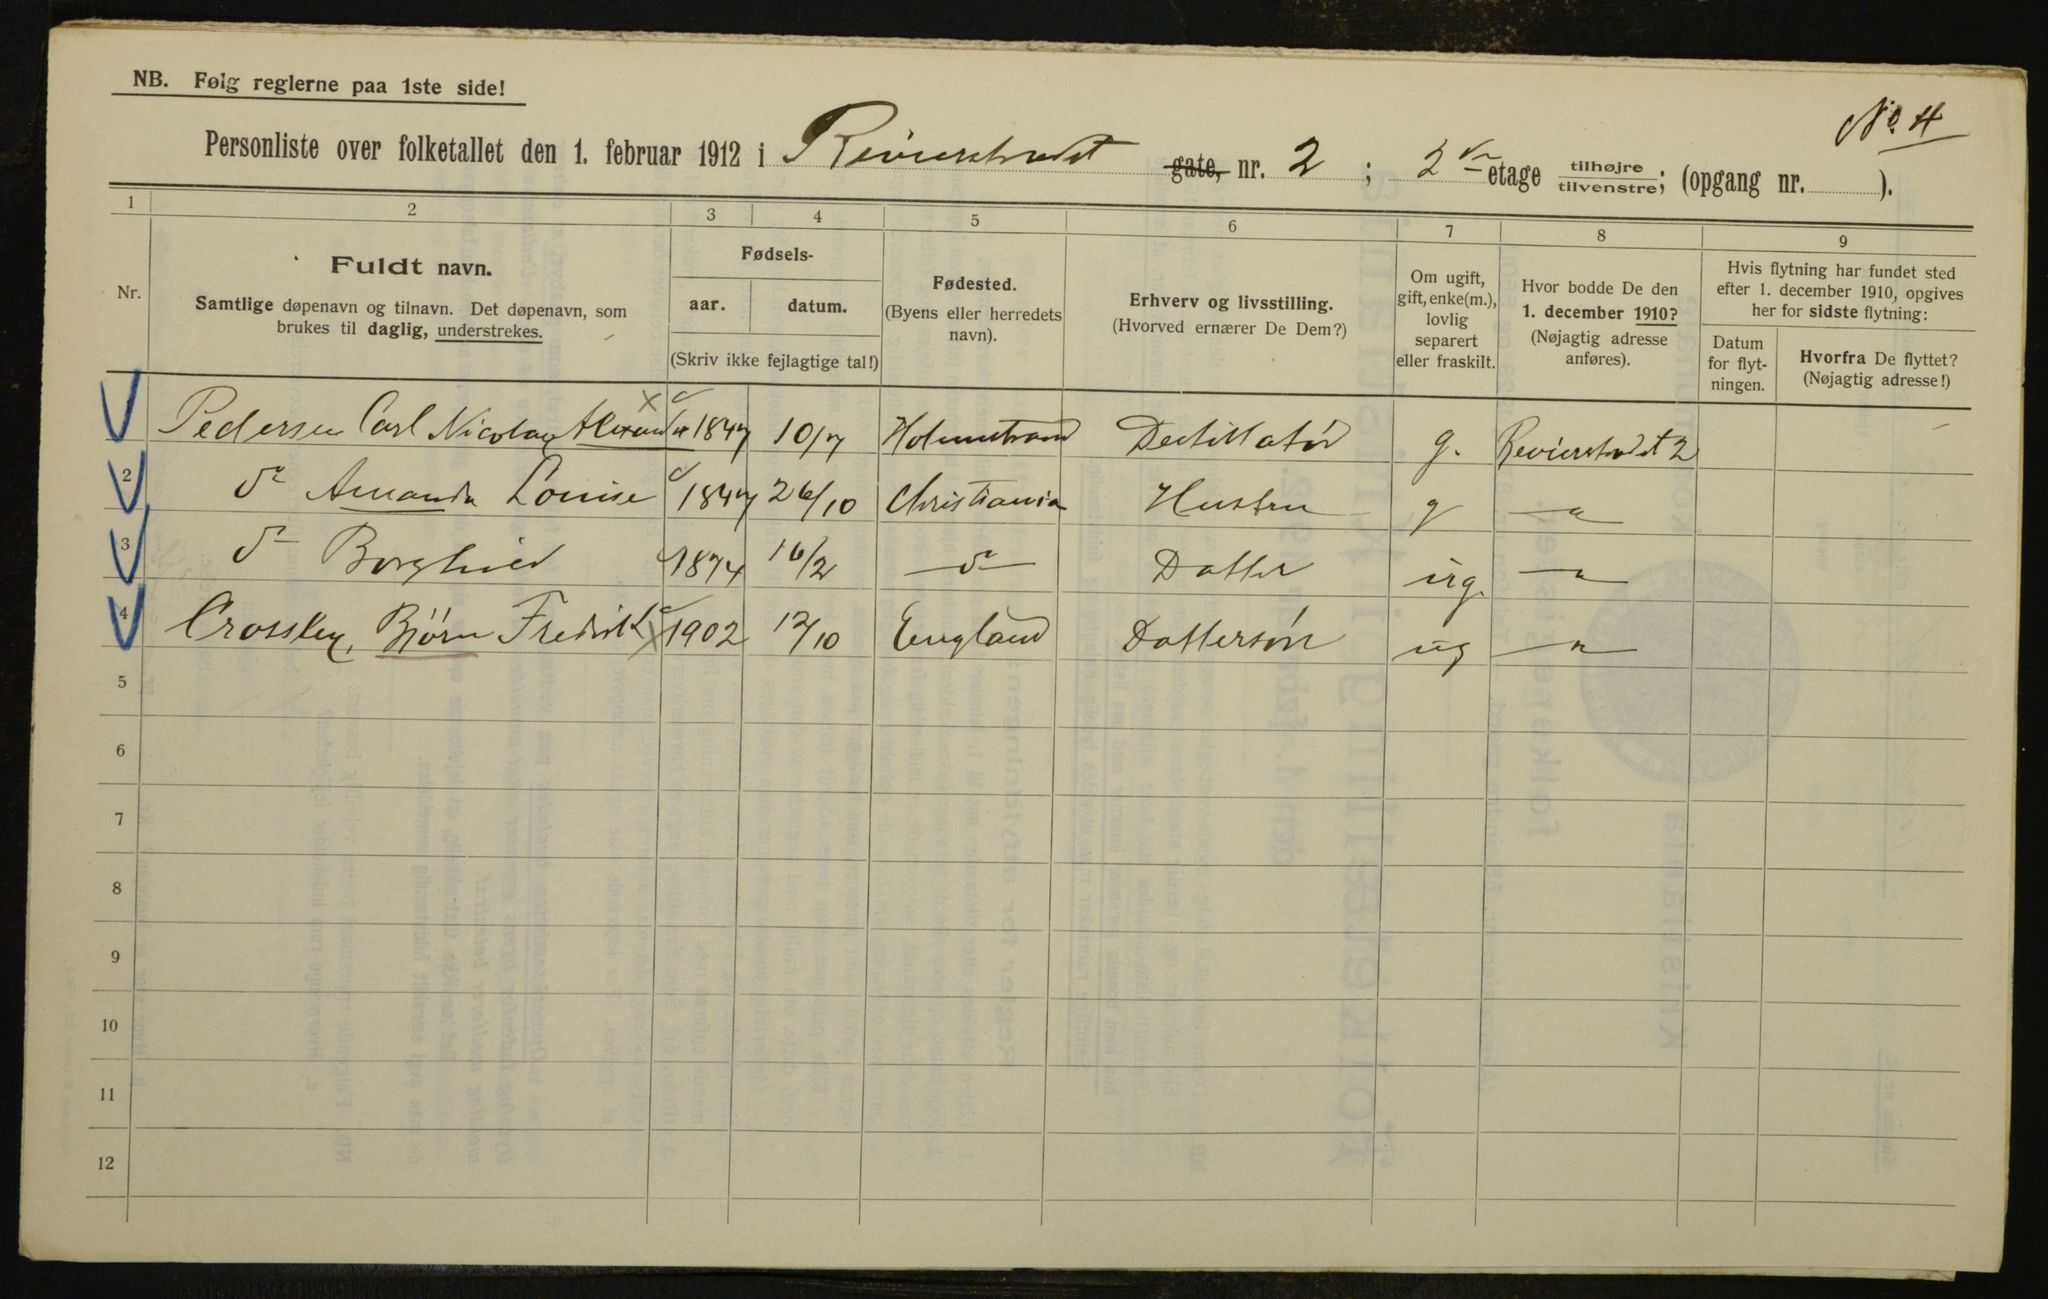 NB. Følg reglerne paa 1ste side!
No. 4
Personliste over folketallet den 1. februar 1912 i Revierstrædet gate, nr. 2 ; 2den etage tilhøjre/tilvenstre; (opgang nr. ).
1 2 3 4 5 6 7 8 9
Nr.
Fuldt navn.
Samtlige døpenavn og tilnavn. Det døpenavn, som
brukes til daglig, understrekes.
Fødsels-
aar. datum.
(Skriv ikke fejlagtige tal!)
Fødested.
(Byens eller herredets
navn).
Erhverv og livsstilling.
(Hvorved ernærer De Dem?)
Om ugift,
gift, enke(m.),
lovlig
separert
eller fraskilt.
Hvor bodde De den
1. december 1910?
(Nøjagtig adresse
anføres).
Hvis flytning har fundet sted
efter 1. december 1910, opgives
her for sidste flytning:
Datum
for flyt-
ningen.
Hvorfra De flyttet?
(Nøjagtig adresse!)
Pedersen Carl Nicolay Alexander 1847 10/7 Holmestrand Destillatør g. Revierstrædet 2
2 do Amanda Louise 1847 26/10 Christiania Hustru g —"—
3 do Borghild 1874 16/2 —do— Datter ug. —"—
4 Crossley, Bjørn Fredrik 1902 12/10 England Dattersøn ug —"—
5
6
7
8
9
10
11
12